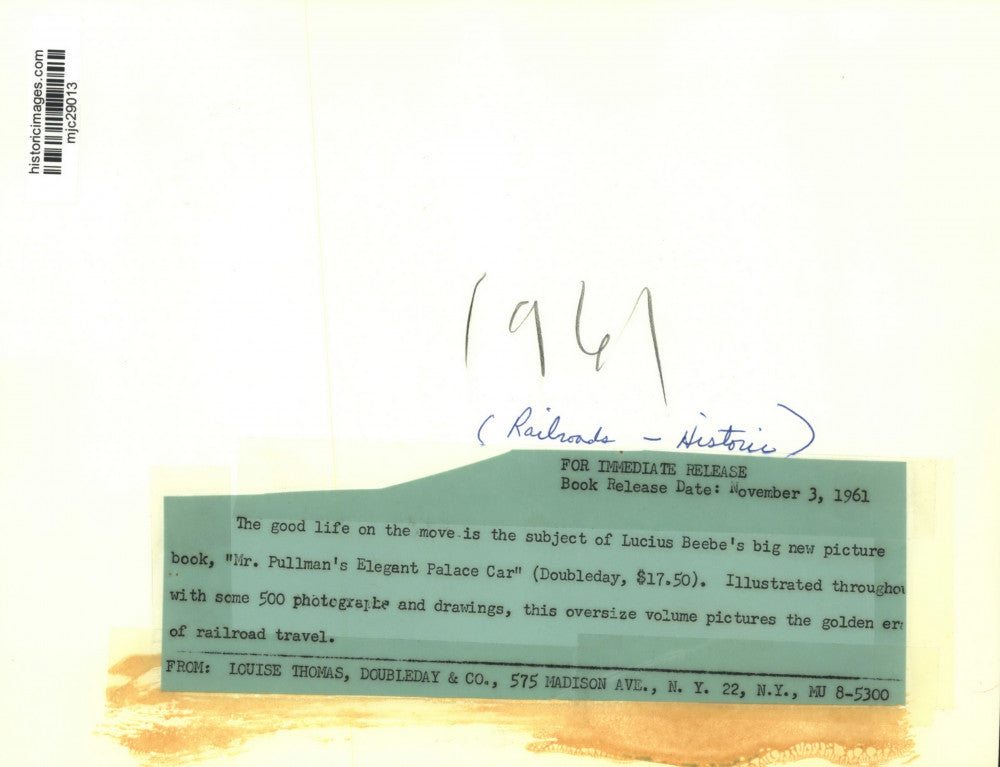 historicimages.com
mjc29013
1961
(Railroads - Historic)
FOR IMMEDIATE RELEASE
Book Release Date: November 3, 1961
The good life on the move is the subject of Lucius Beebe's big new picture
book, "Mr. Pullman's Elegant Palace Car" (Doubleday, $17.50). Illustrated throughou
with some 500 photographs and drawings, this oversize volume pictures the golden era
of railroad travel.
FROM: LOUISE THOMAS, DOUBLEDAY & CO., 575 MADISON AVE., N. Y. 22, N.Y., MU 8-5300